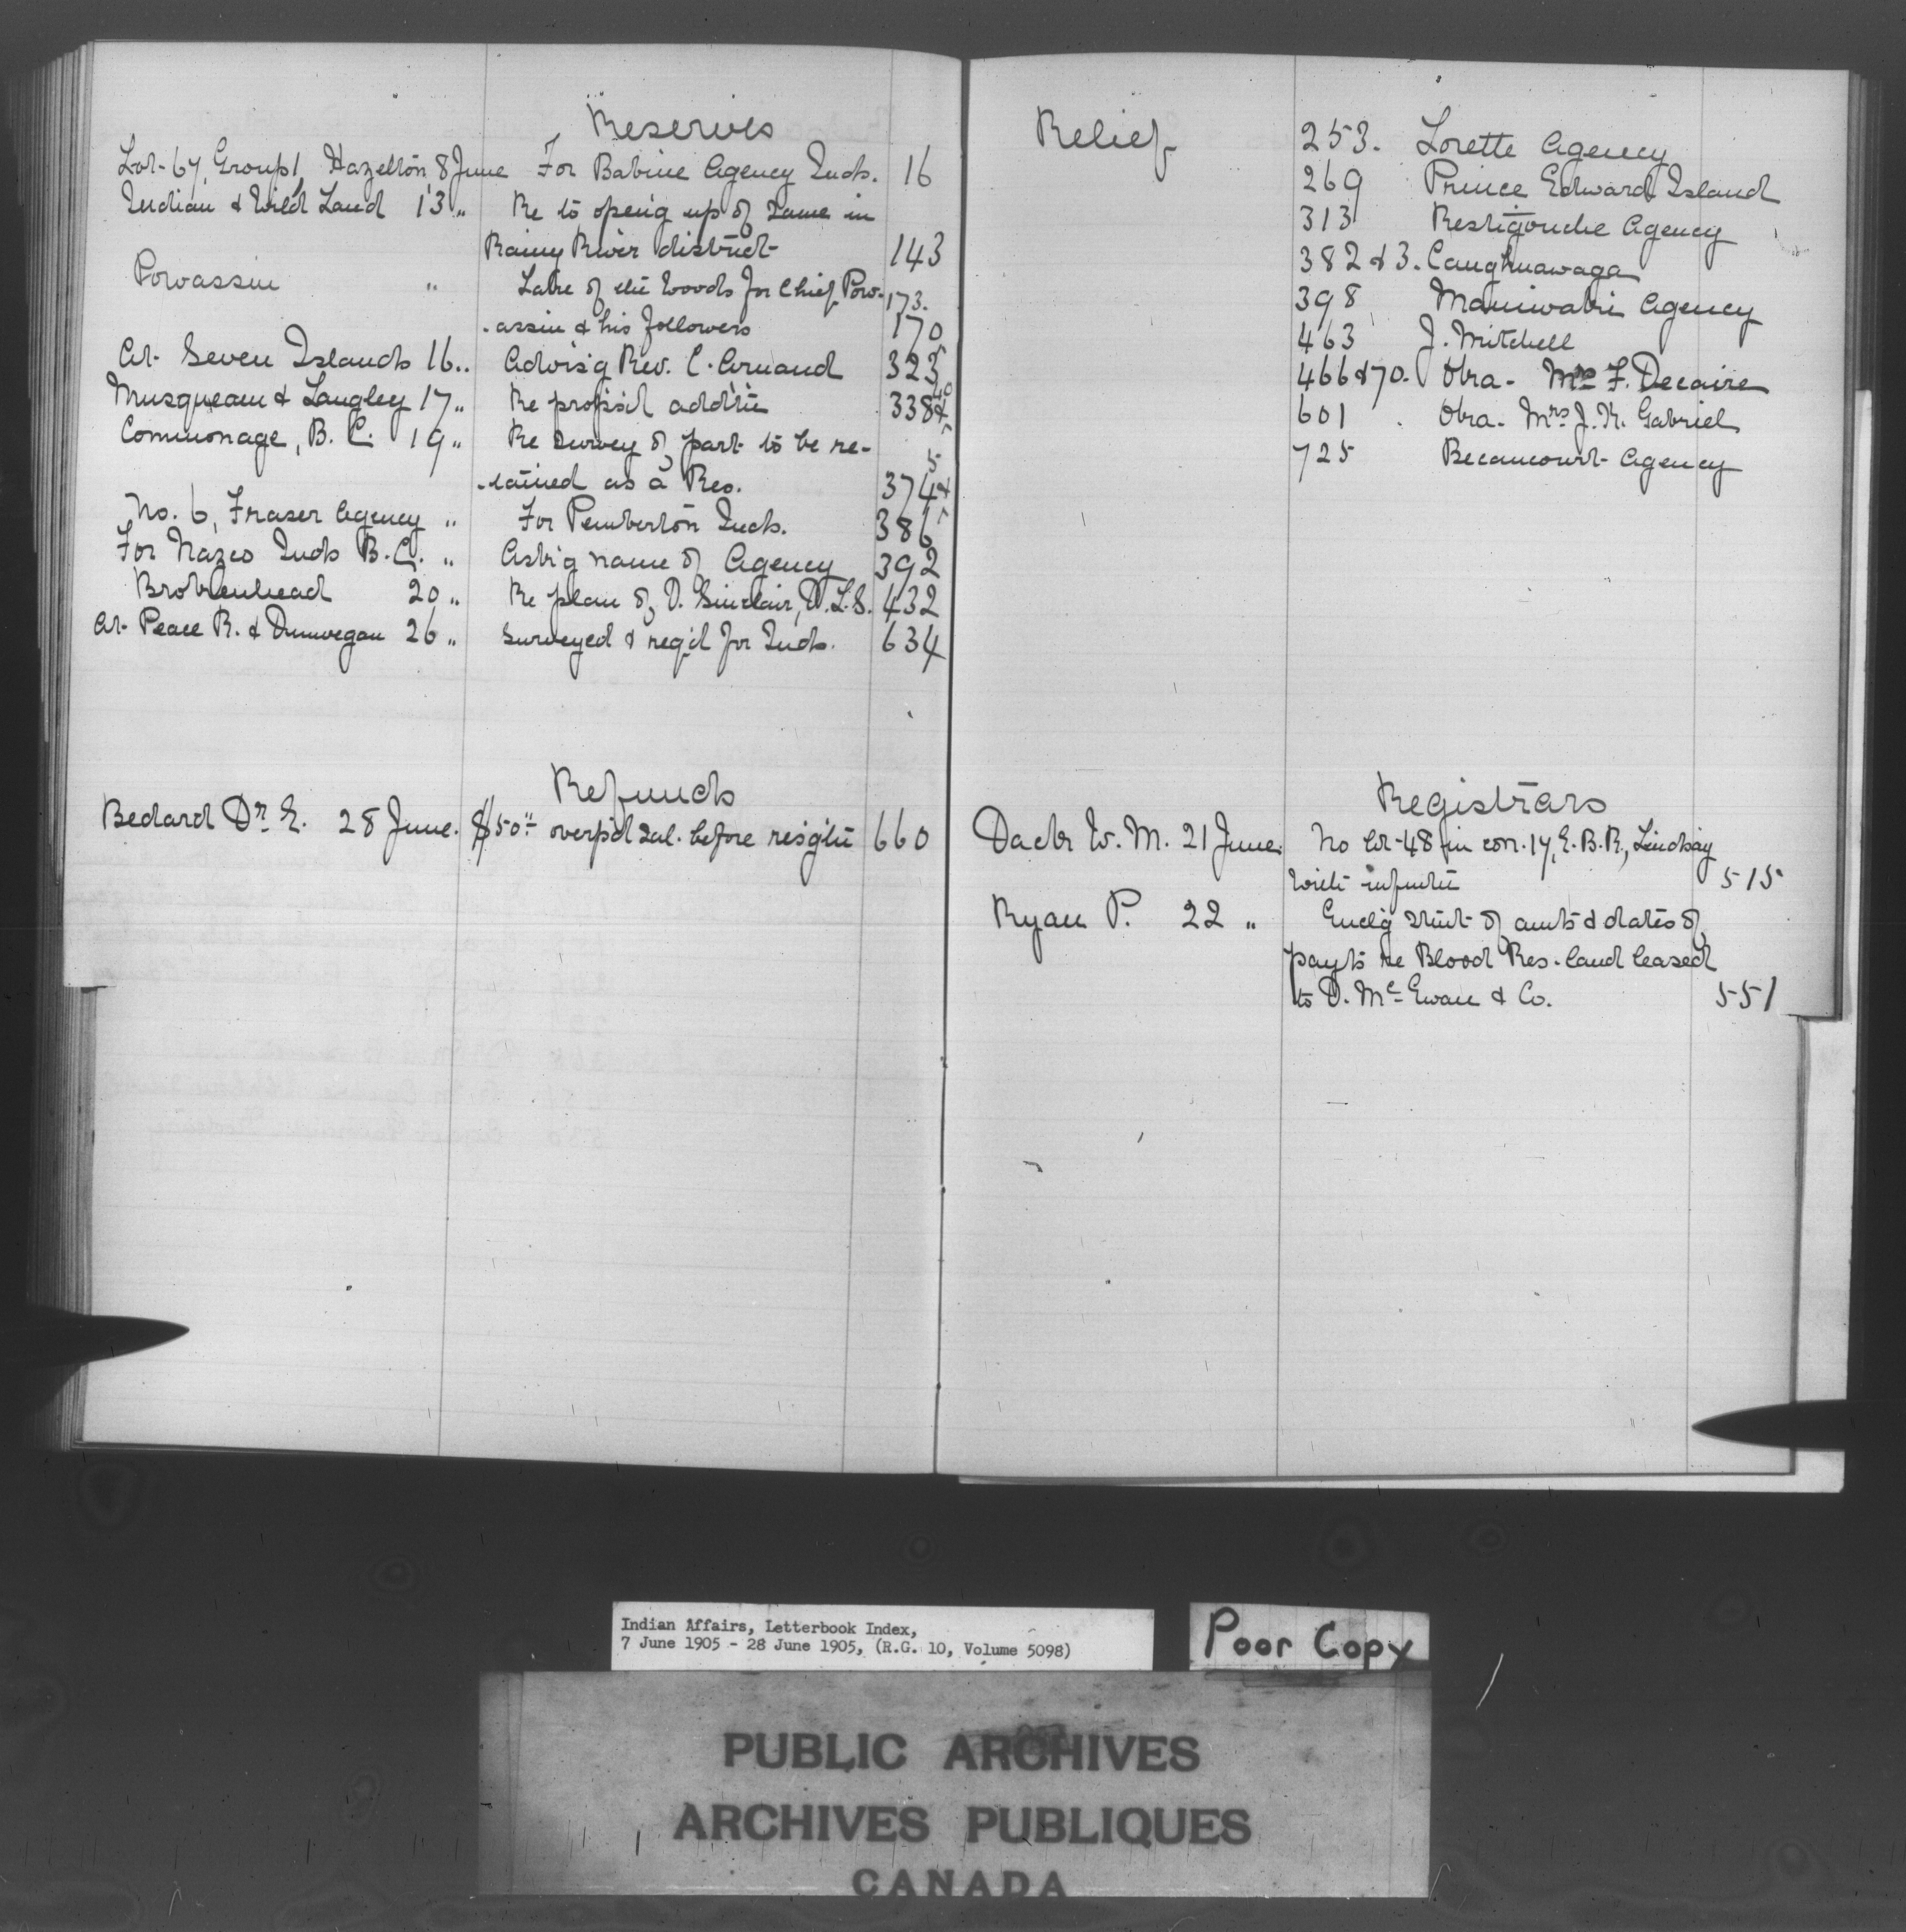 Reserves
Lot 67, Group 1, Hazelton 8 June For Babine Agency Inds. 16
Indian & Wild Land 13 " Re to open'g up of same in
Rainy River district 143
Powassin " Lake of the Woods for Chief Pow- 173.
-assin & his followers 170
At Seven Islands 16 " Advis'g Rev. C. Arnaud 323
Musqueam & Langley 17 " Re propos'd addt'n 338 &
Commonage, B.C. 19 " Re survey of part to be re-
-tained as a Res. 374 & 5
No. 6, Fraser Agency " For Pemberton Inds. 386
For Nazco Inds B.C. " Ask'g name of Agency 392
Brokenhead 20 " Re plan of D. Sinclair, D.L.S. 432
At Peace R. & Dunvegan 26 " Surveyed & req'd for Inds. 634
Refunds
Bedard Dr. E. 28 June. $50.— overp'd sal. before resig'tn 660
Relief
253. Lorette Agency
269 Prince Edward Island
313 Restigouche Agency
382 & 3. Caughnawaga
398 Maniwaki Agency
463 J. Mitchell
466 & 70. Oka - Mrs F. Decaire
601 Oka - Mrs J. R. Gabriel
725 Becancourt Agency
Registrars
Dack W. M. 21 June. No lot 48 in con. 17, E.B.R., Lindsay
with 515
Ryan P. 22 " Encl'g stm't of am'ts & dates of
pay'ts re Blood Res. land leased
to D. McEwan & Co. 551
Indian Affairs, Letterbook Index,
7 June 1905 - 28 June 1905, (R.G. 10, Volume 5098)
Poor Copy
PUBLIC ARCHIVES
ARCHIVES PUBLIQUES
CANADA